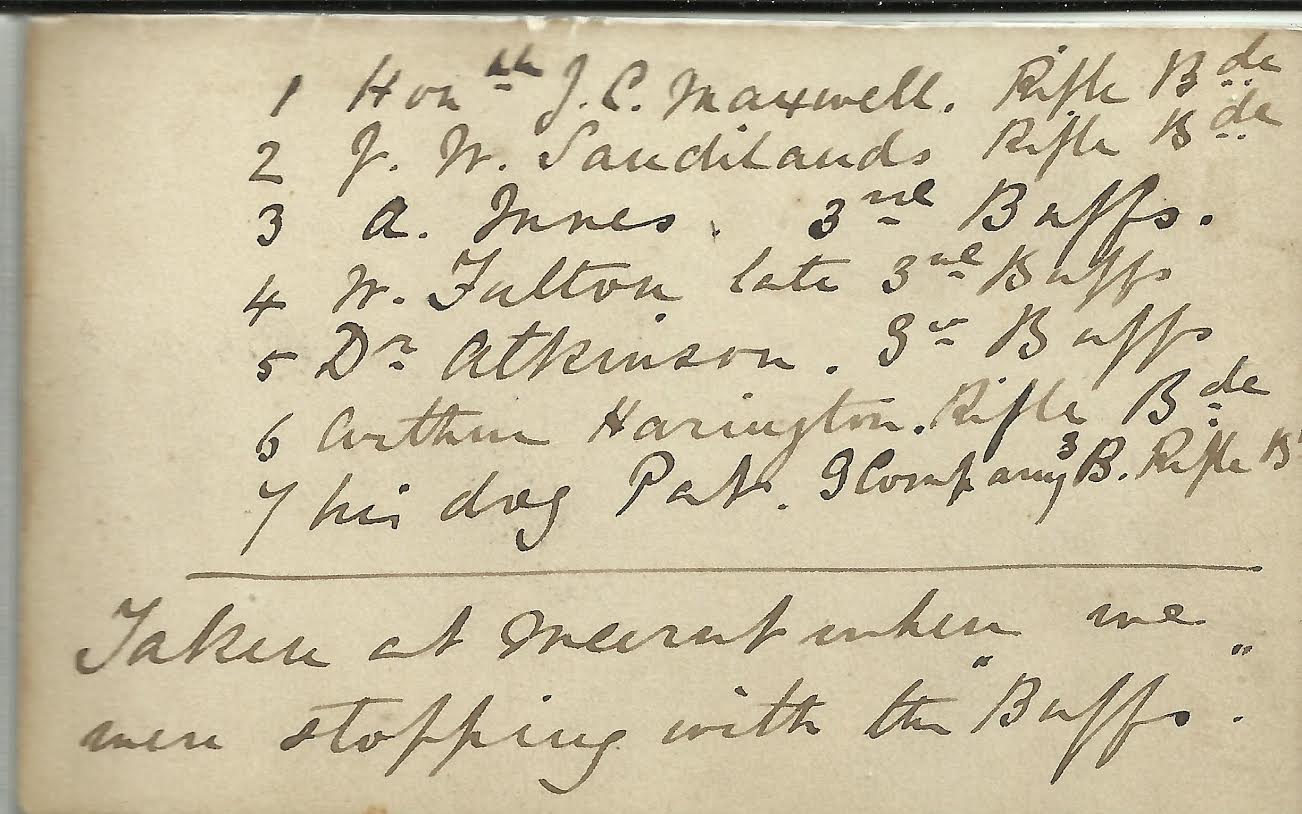 1 Honble J. C. Maxwell. Rifle Bde
2 J. W. Sandilands Rifle Bde
3 A. Innes. 3rd Buffs.
4 W. Fulton late 3rd Buffs
5 Dr Atkinson. 3rd Buffs
6 Arthur Harington. Rifle Bde
7 his dog Pat. I Company 3 B. Rifle B
Taken at Meerut when we
were stopping with the "Buffs".